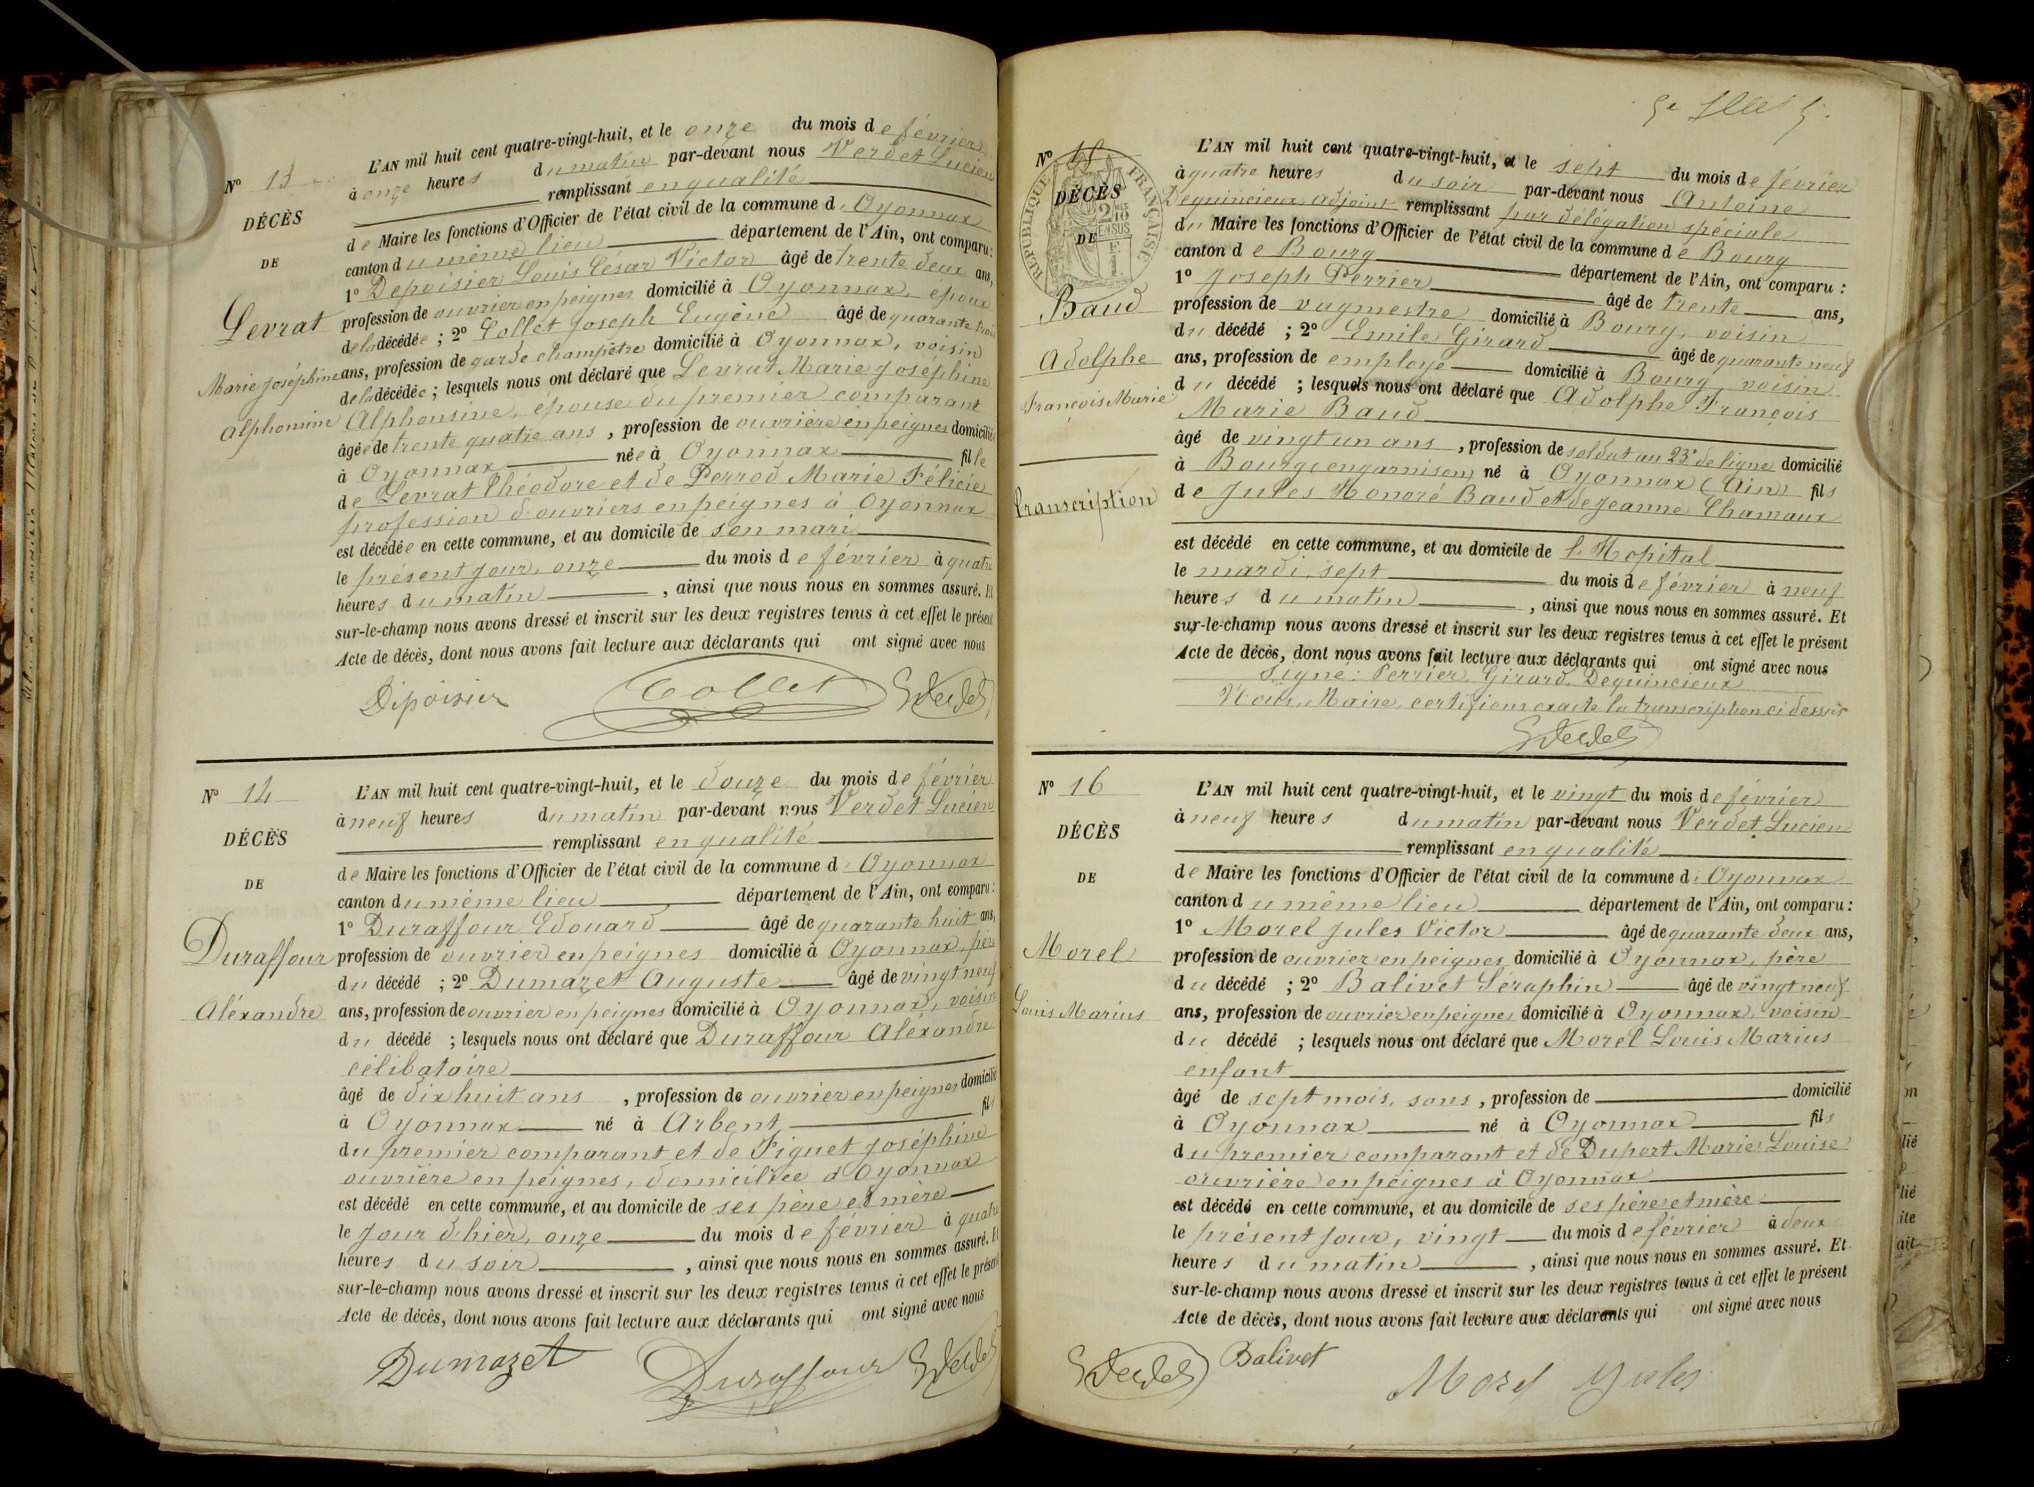 N° 13
DÉCÈS
DE
Levrat
Marie Joséphine
Alphonsine
L'AN mil huit cent quatre-vingt-huit, et le onze du mois de février
à onze heures du matin par-devant nous Verdet Lucien
remplissant en qualité
de Maire les fonctions d'Officier de l'état civil de la commune d'Oyonnax
canton du même lieu département de l'Ain, ont comparu :
1° Depoisier Louis César Victor âgé de trente deux ans,
profession de ouvrier en peignes domicilié à Oyonnax, époux
de la décédée ; 2° Collet Joseph Eugène âgé de quarante trois
ans, profession de garde champêtre domicilié à Oyonnax, voisin
de la décédée ; lesquels nous ont déclaré que Levrat Marie Joséphine
Alphonsine, épouse du premier comparant
âgée de trente quatre ans, profession de ouvrière en peignes domiciliée
à Oyonnax née à Oyonnax fille
de Levrat Théodore et de Perrod Marie Félicie
profession d'ouvriers en peignes à Oyonnax
est décédée en cette commune, et au domicile de son mari
le présent jour, onze du mois de février à quatre
heures du matin, ainsi que nous nous en sommes assuré. Et
sur-le-champ nous avons dressé et inscrit sur les deux registres tenus à cet effet le présent
Acte de décès, dont nous avons fait lecture aux déclarants qui ont signé avec nous
Dépoisier Collet Verdet
N° 14
DÉCÈS
DE
Duraffour
Aléxandre
L'AN mil huit cent quatre-vingt-huit, et le douze du mois de février
à neuf heures du matin par-devant nous Verdet Lucien
remplissant en qualité
de Maire les fonctions d'Officier de l'état civil de la commune d'Oyonnax
canton du même lieu département de l'Ain, ont comparu :
1° Duraffour Edouard âgé de quarante huit ans,
profession de ouvrier en peignes domicilié à Oyonnax, père
du décédé ; 2° Dumazet Auguste âgé de vingt neuf
ans, profession de ouvrier en peignes domicilié à Oyonnax, voisin
du décédé ; lesquels nous ont déclaré que Duraffour Aléxandre
célibataire
âgé de dix huit ans, profession de ouvrier en peignes domicilié
à Oyonnax né à Arbent fils
du premier comparant et de Piguet Joséphine
ouvrière en peignes, domiciliée à Oyonnax
est décédé en cette commune, et au domicile de ses père et mère
le jour d'hier, onze du mois de février à quatre
heures du soir, ainsi que nous nous en sommes assuré. Et
sur-le-champ nous avons dressé et inscrit sur les deux registres tenus à cet effet le présent
Acte de décès, dont nous avons fait lecture aux déclarants qui ont signé avec nous
Dumazet Duraffour Verdet
N° 15
DÉCÈS
DE
RÉPUBLIQUE FRANÇAISE
2/10 EN SUS
Baud
Adolphe
François Marie
Transcription
L'AN mil huit cent quatre-vingt-huit, et le sept du mois de février
à quatre heures du soir par-devant nous Antoine
Dequincieux adjoint remplissant par délégation spéciale
du Maire les fonctions d'Officier de l'état civil de la commune de Bourg
canton de Bourg département de l'Ain, ont comparu :
1° Joseph Perrier âgé de trente ans,
profession de vagmestre domicilié à Bourg, voisin
du décédé ; 2° Emile Girard âgé de quarante neuf
ans, profession de employé domicilié à Bourg, voisin
du décédé ; lesquels nous ont déclaré que Adolphe François
Marie Baud
âgé de vingt un ans, profession de soldat au 23e de ligne domicilié
à Bourg, en garnison, né à Oyonnax (Ain) fils
de Jules Honoré Baud et de Jeanne Chamaux
est décédé en cette commune, et au domicile de l'Hopital
le mardi, sept du mois de février à neuf
heures du matin, ainsi que nous nous en sommes assuré. Et
sur-le-champ nous avons dressé et inscrit sur les deux registres tenus à cet effet le présent
Acte de décès, dont nous avons fait lecture aux déclarants qui ont signé avec nous
Signé : Perrier, Girard, Dequincieux
Nous, Maire, certifions exacte la transcription ci dessus
Verdet
N° 16
DÉCÈS
DE
Morel
Louis Marius
L'AN mil huit cent quatre-vingt-huit, et le vingt du mois de février
à neuf heures du matin par-devant nous Verdet Lucien
remplissant en qualité
de Maire les fonctions d'Officier de l'état civil de la commune d'Oyonnax
canton du même lieu département de l'Ain, ont comparu :
1° Morel Jules Victor âgé de quarante deux ans,
profession de ouvrier en peignes domicilié à Oyonnax, père
du décédé ; 2° Balivet Séraphin âgé de vingt neuf
ans, profession de ouvrier en peignes domicilié à Oyonnax, voisin
du décédé ; lesquels nous ont déclaré que Morel Louis Marius
enfant
âgé de sept mois, sans, profession de domicilié
à Oyonnax né à Oyonnax fils
du premier comparant et de Dupert Marie Louise
ouvrière en peignes à Oyonnax
est décédé en cette commune, et au domicile de ses père et mère
le présent jour, vingt du mois de février à deux
heures du matin, ainsi que nous nous en sommes assuré. Et
sur-le-champ nous avons dressé et inscrit sur les deux registres tenus à cet effet le présent
Acte de décès, dont nous avons fait lecture aux déclarants qui ont signé avec nous
Verdet Balivet Morel Jules